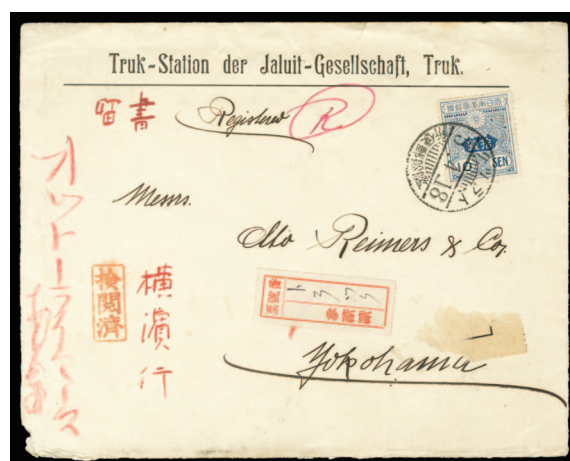 Truk-Station der Jaluit-Gesellschaft, Truk.
書留
Registered
R
SEN
4.18
Messrs.
Otto Reimers & Co,
検閲済
横濱行
Yokohama
オットーライマース